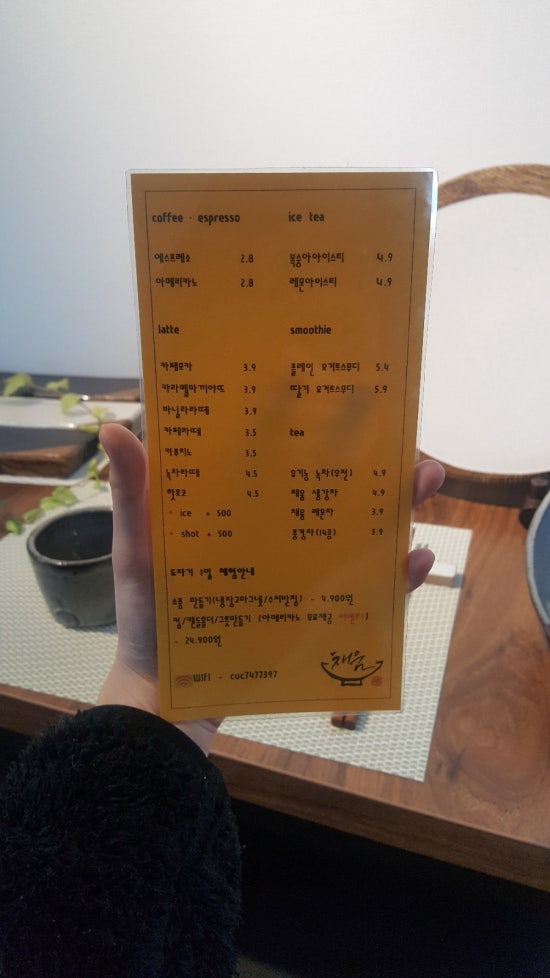 coffee · espresso
에스프레소 2.8
아메리카노 2.8
latte
카페모카 3.9
카라멜마끼아또 3.9
바닐라라떼 3.9
카페라떼 3.5
카푸치노 3.5
녹차라떼 4.5
핫초코 4.5
* ice + 500
* shot + 500
ice tea
복숭아아이스티 4.9
레몬아이스티 4.9
smoothie
플레인 요거트스무디 5.4
딸기 요거트스무디 5.9
tea
유기농 녹차(우전) 4.9
채움 생강차 4.9
채움 레몬차 3.9
홍경차(14종) 3.9
도자기 1일 체험안내
소품 만들기(냉장고마그넷/수저받침) - 4.900원
컵/캔들홀더/그릇만들기 (아메리카노 무료제공 이벤트!)
- 24.900원
WIFI - cuc7477397
채움